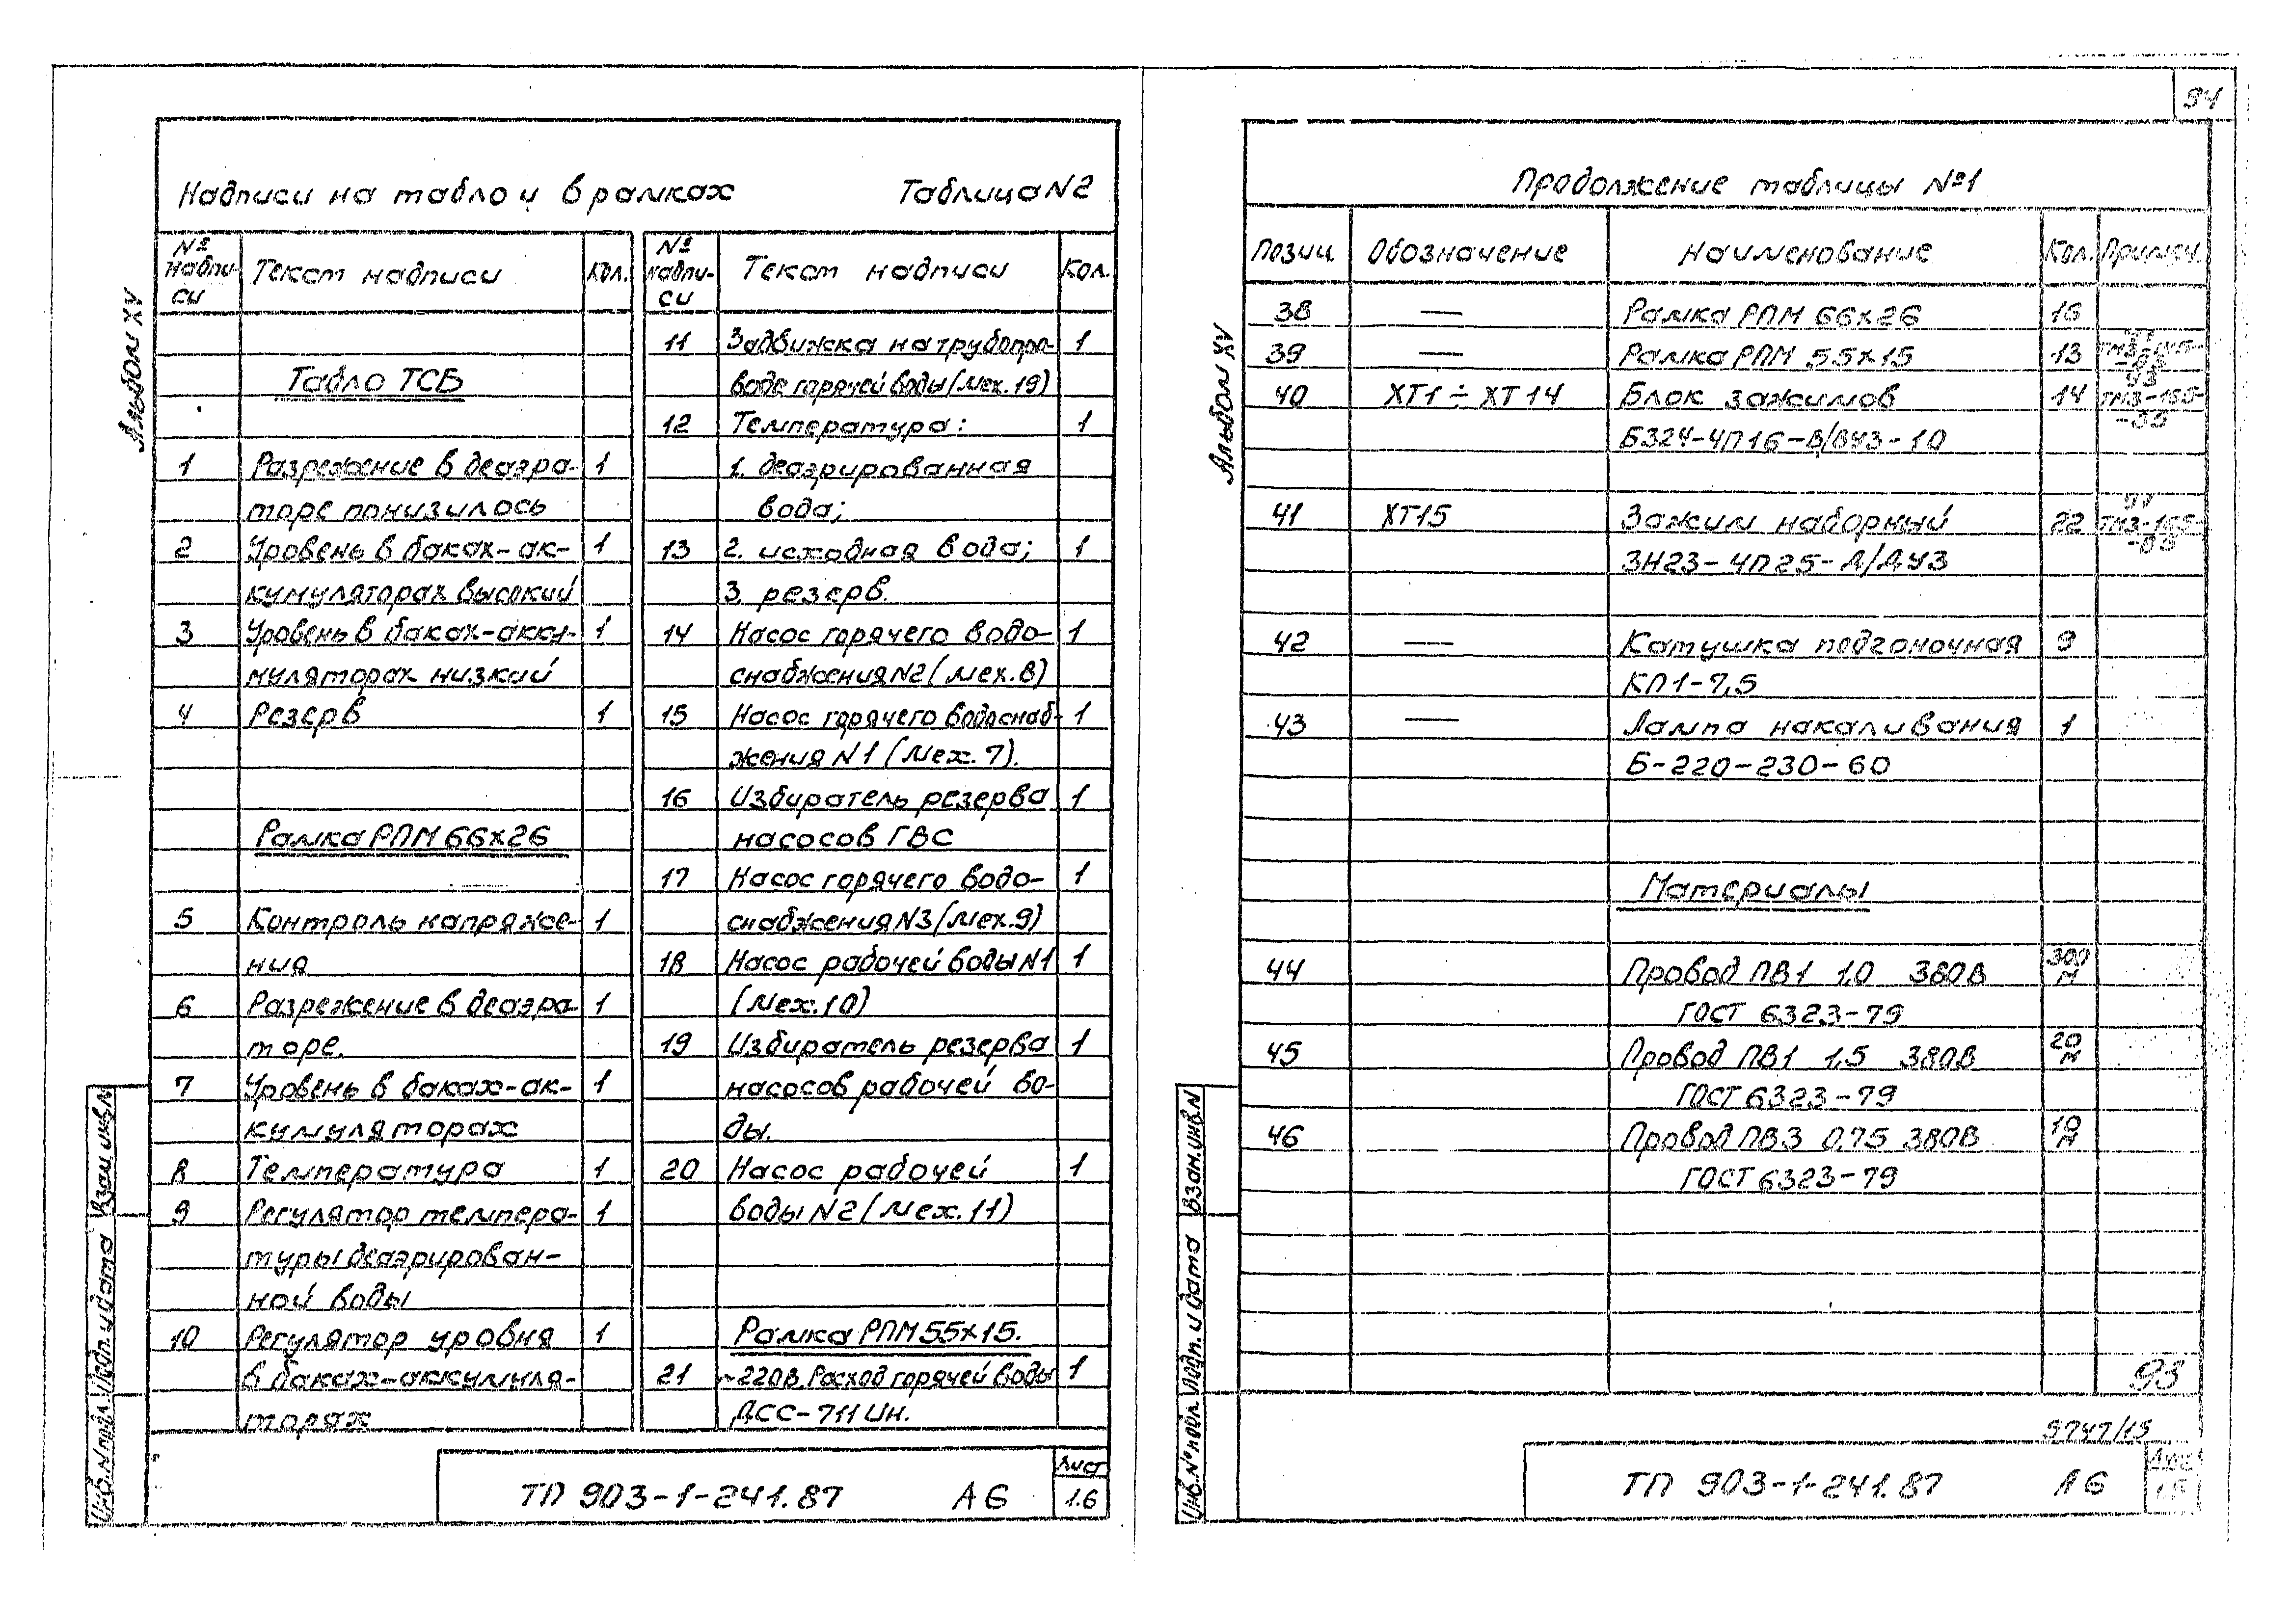 91
Надписи на табло и в рамках Таблица N2
№ надписи Текст надписи Кол.
Табло ТСБ
1 Разрежение в деаэра- 1
торе понизилось
2 Уровень в баках-ак- 1
кумуляторах высокий
3 Уровень в баках-акку- 1
муляторах низкий
4 Резерв 1
Рамка РПМ 66х26
5 Контроль напряже- 1
ния
6 Разрежение в деаэра- 1
торе.
7 Уровень в баках-ак- 1
кумуляторах
8 Температура 1
9 Регулятор темпера- 1
туры деаэрирован-
ной воды
10 Регулятор уровня 1
в баках-аккумуля-
торах
№ надписи Текст надписи Кол.
11 Задвижка на трубопро- 1
воде горячей воды (Мех. 19)
12 Температура: 1
1. деаэрированная
вода;
13 2. исходная вода; 1
3. резерв.
14 Насос горячего водо- 1
снабжения N2 (Мех. 8)
15 Насос горячего водоснаб- 1
жения N1 (Мех. 7).
16 Избиратель резерва 1
насосов ГВС
17 Насос горячего водо- 1
снабжения N3 (Мех. 9)
18 Насос рабочей воды N1 1
(Мех. 10)
19 Избиратель резерва 1
насосов рабочей во-
ды.
20 Насос рабочей 1
воды N2 (Мех. 11)
Рамка РПМ 55х15.
21 ~220В. Расход горячей воды 1
ДСС-711Ин.
Альбом XV
Взам инв N
Подп. и дата
Инв. N подл.
ТП 903-1-241.87 А6
Лист
1.6
Продолжение таблицы №1
Позиц. Обозначение Наименование Кол. Примеч.
38 — Рамка РПМ 66х26 16
39 — Рамка РПМ 55х15 13
40 ХТ1÷ХТ14 Блок зажимов 14
БЗ24-4П16-В/ВУ3-10
41 ХТ15 Зажим наборный 22
ЗН23-4П25-Д/ДУ3
42 — Катушка подгоночная 9
КП1-7,5
43 — Лампа накаливания 1
Б-220-230-60
Материалы
44 Провод ПВ1 1,0 380В 300 м
ГОСТ 6323-79
45 Провод ПВ1 1,5 380В 20 м
ГОСТ 6323-79
46 Провод ПВ3 0,75 380В 10 м
ГОСТ 6323-79
93
Альбом XV
Взам. инв N
Подп. и дата
Инв. № подл.
ТП 903-1-241.87 А6
Лист
1.5